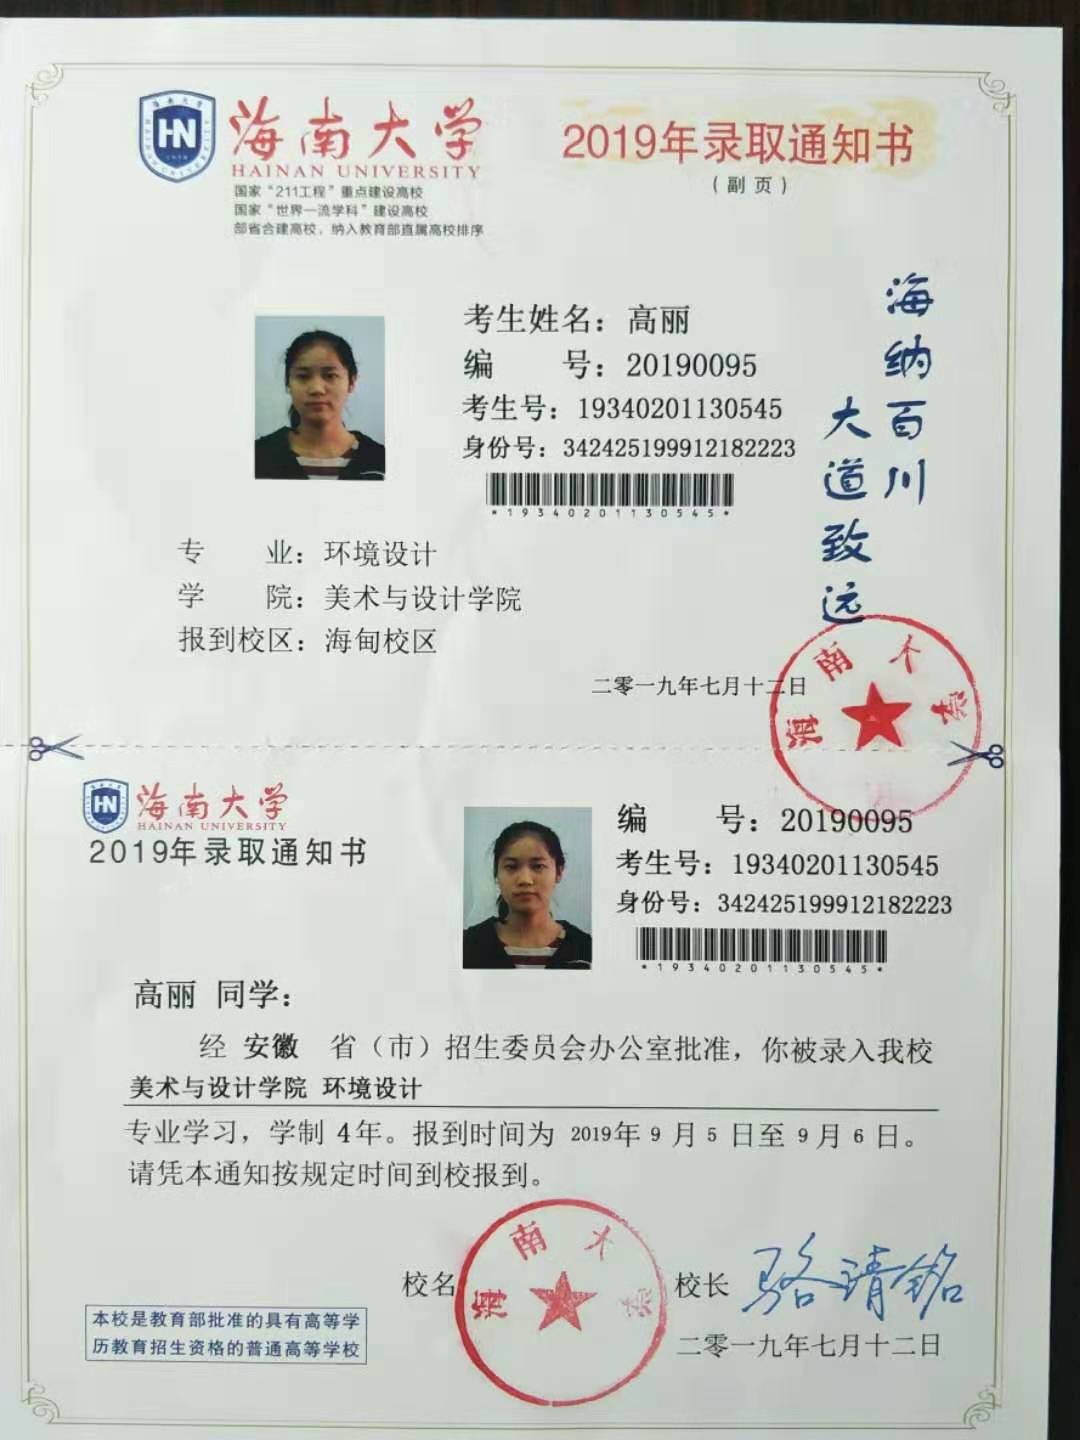 海南大学
HAINAN UNIVERSITY
国家“211工程”重点建设高校
国家“世界一流学科”建设高校
部省合建高校，纳入教育部直属高校排序
2019年录取通知书
（副页）
考生姓名：高丽
编 号：20190095
考生号：19340201130545
身份号：342425199912182223
*19340201130545*
海纳百川
大道致远
专 业：环境设计
学 院：美术与设计学院
报到校区：海甸校区
二零一九年七月十二日
海南大学
HN
海南大学
HAINAN UNIVERSITY
2019年录取通知书
编 号：20190095
考生号：19340201130545
身份号：342425199912182223
*19340201130545*
高丽 同学：
经 安徽 省（市）招生委员会办公室批准，你被录入我校
美术与设计学院 环境设计
专业学习，学制 4年。报到时间为 2019年 9 月 5 日至 9 月 6 日。
请凭本通知按规定时间到校报到。
校名
海南大学
校长 骆清铭
二零一九年七月十二日
本校是教育部批准的具有高等学
历教育招生资格的普通高等学校